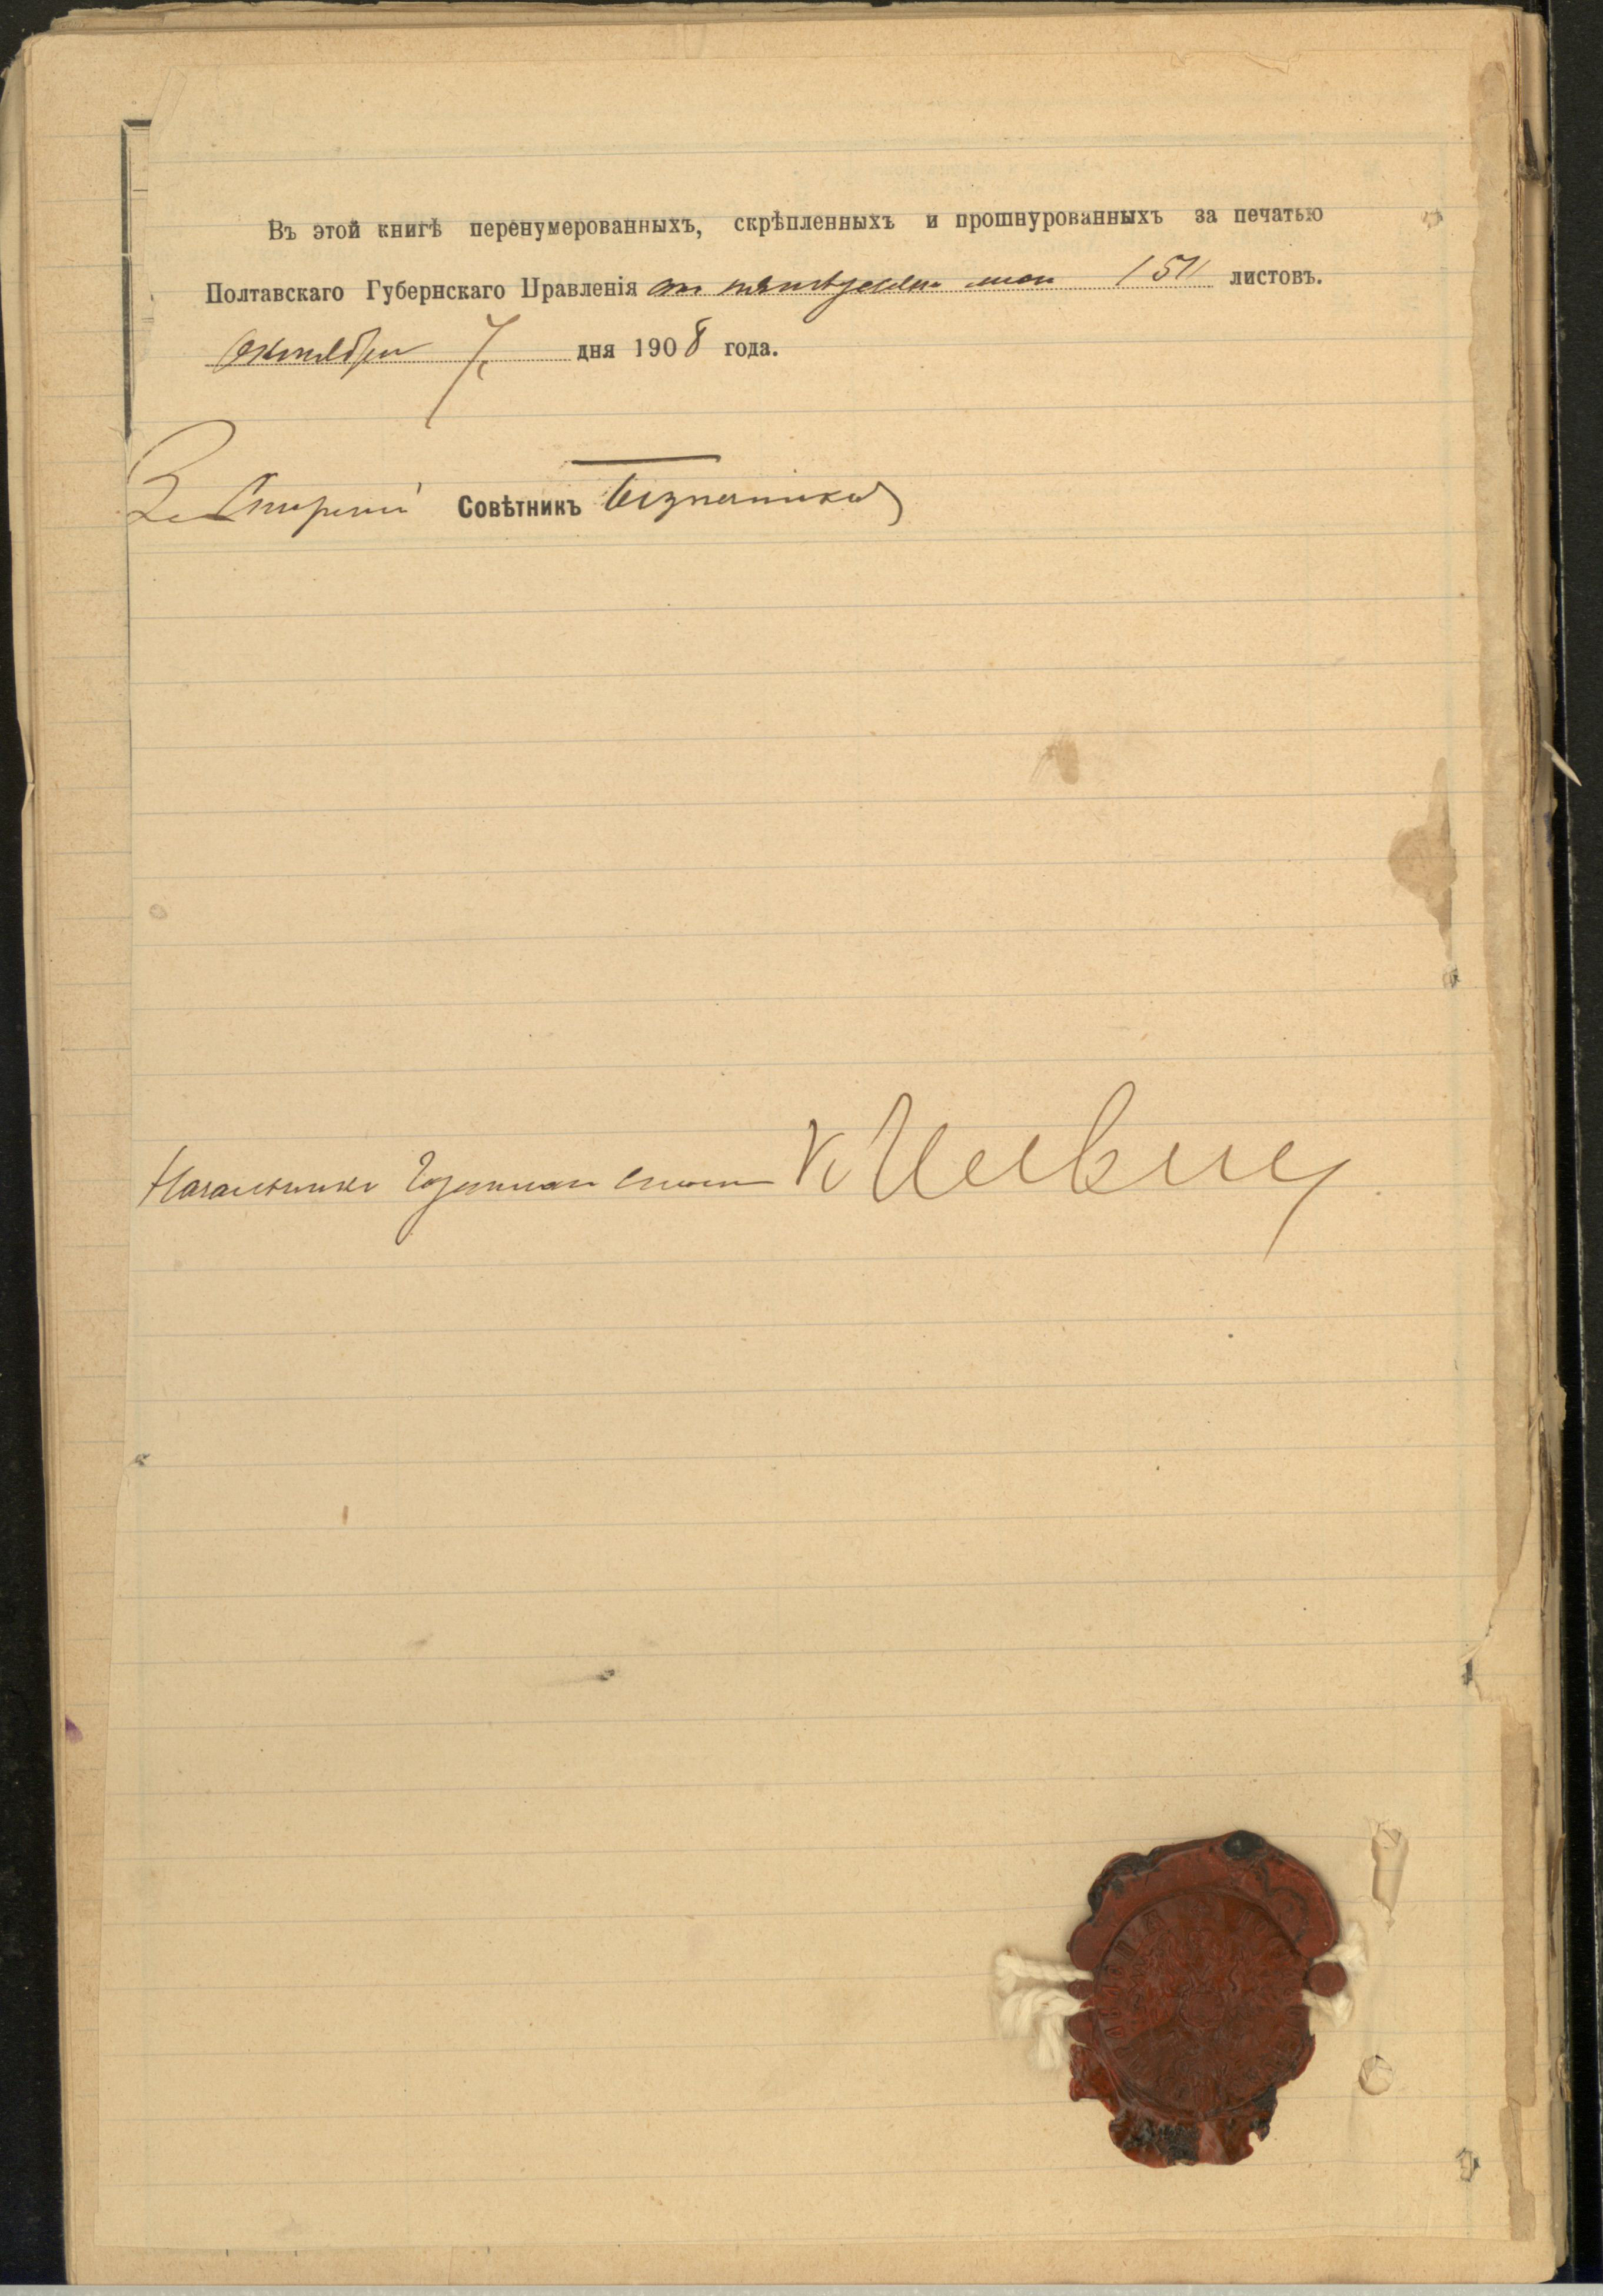 Въ этой книгѣ перенумерованныхъ, скрѣпленныхъ и прошнурованныхъ за печатью
Полтавскаго Губернскаго Правленія сто пятьдесятъ 151 листовъ.
Октября 7 дня 1908 года.
За Старшій Совѣтникъ
Начальникъ